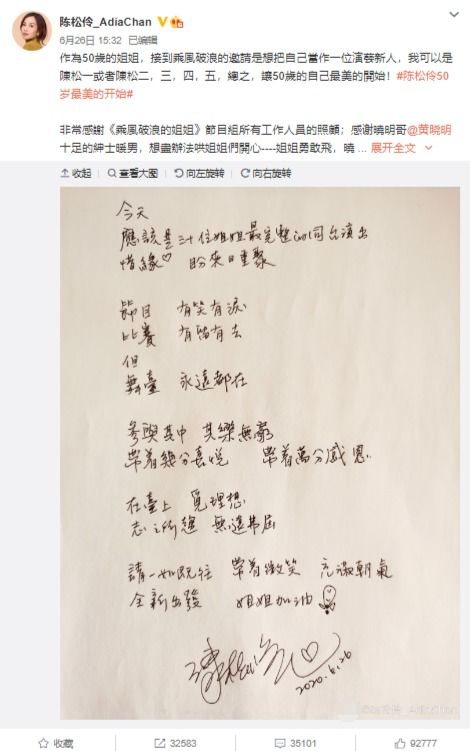 陈松伶_AdiaChan
6月26日 15:32 已编辑
作為50歲的姐姐，接到乘風破浪的邀請是想把自己當作一位演藝新人，我可以是
陳松一或者陳松二，三，四，五，總之，讓50歲的自己最美的開始！#陈松伶50
岁最美的开始#
非常感謝《乘風破浪的姐姐》節目組所有工作人員的照顧；感謝曉明哥@黄晓明
十足的紳士暖男，想盡辦法哄姐姐們開心----姐姐勇敢飛，曉 ... 展开全文
收起 查看大图 向左旋转 向右旋转
今天
應該是三十位姐姐最完整的同台演出
惜緣♡ 盼來日重聚
節目 有笑有淚
比賽 有留有去
但
舞臺 永遠都在
參與其中 其樂無窮
帶着幾分喜悅 帶着萬分感恩
在臺上 覓理想
志之所趨 無遠弗屆
請一如既往 帶着微笑 充滿朝氣
全新出發 姐姐加油
陳松伶♡
2020.6.26
@陈松伶_AdiaChan
收藏 32583 35101 92777